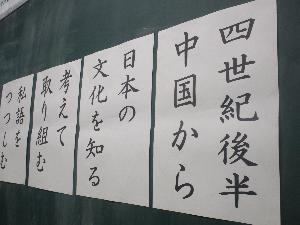 四世紀後半
中国から
日本の
文化を知る
考えて
取り組む
私語を
つつしむ